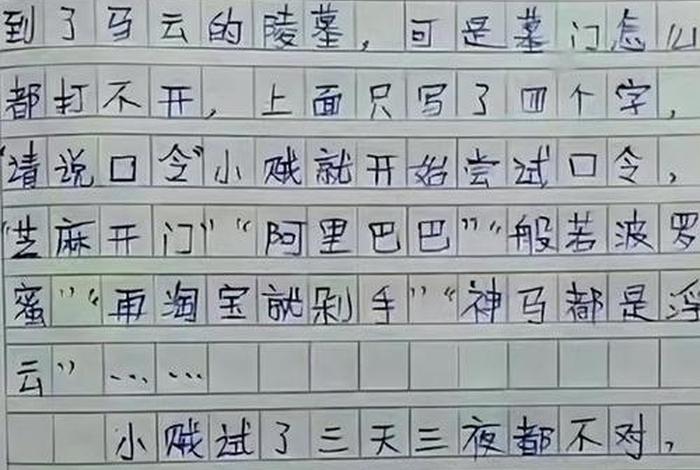 到了马云的陵墓，可是墓门怎么
都打不开，上面只写了四个字，
“请说口令”小贼就开始尝试口令，
“芝麻开门”“阿里巴巴”“般若波罗
蜜”“再淘宝就剁手”“神马都是浮
云”……
小贼试了三天三夜都不对，